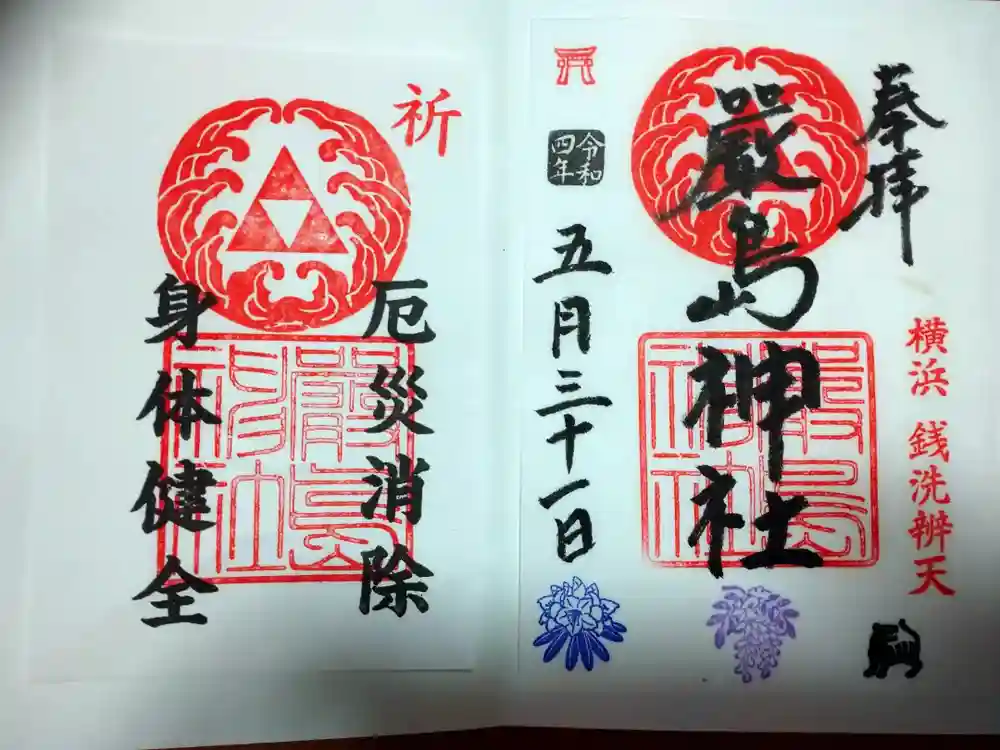 奉拝
横浜 銭洗辨天
嚴島神社
令和
四年
五月三十一日
祈
厄災消除
身体健全